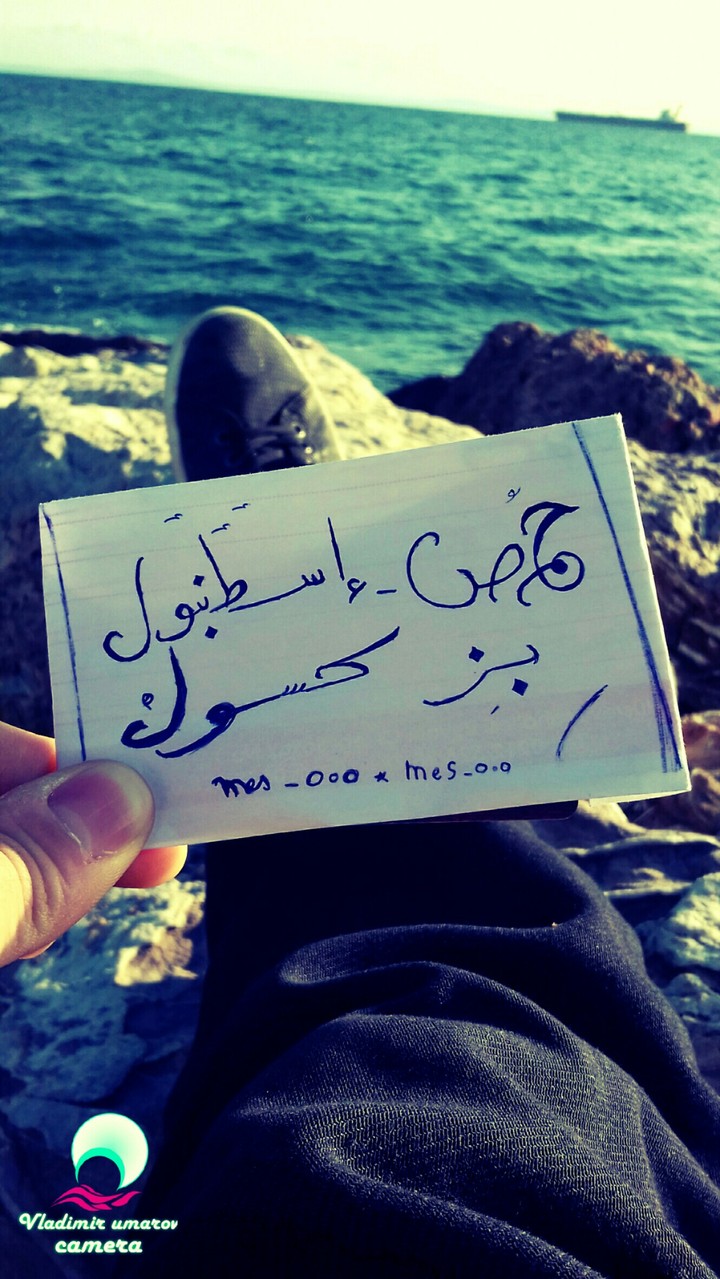 حمُص - إسطنبول
بِز كحسول
mes - 000 * mes - 000
Vladimir umarov
camera